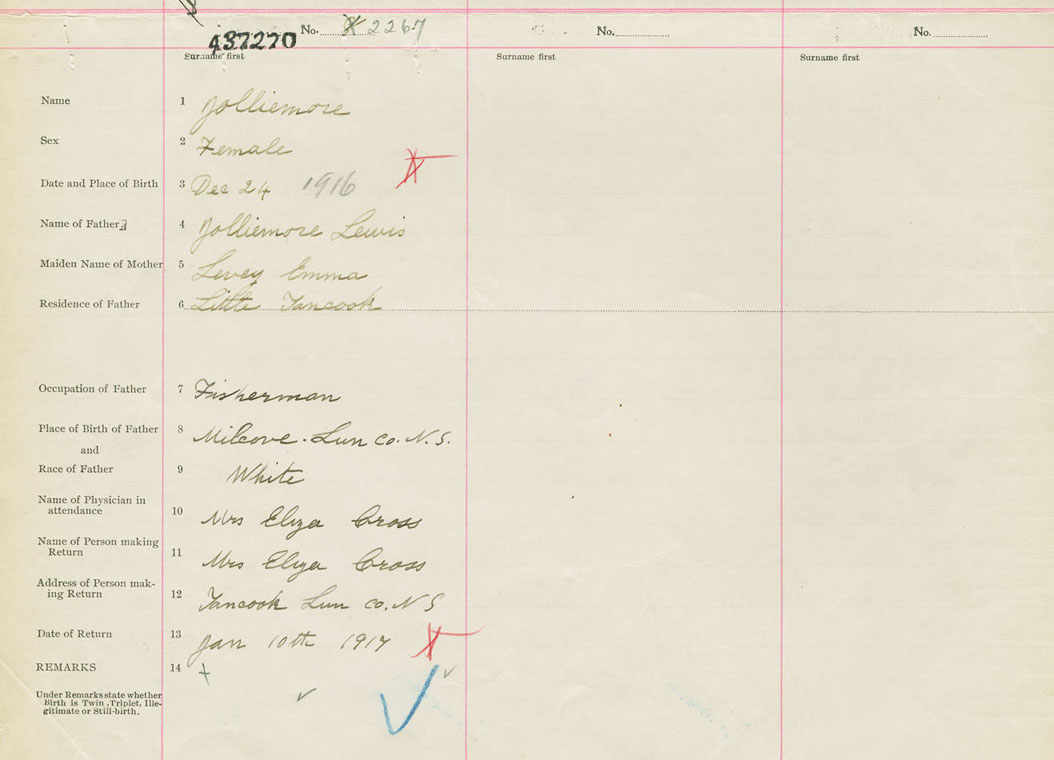 No. X 2267 No. No.
437270
Surname first Surname first Surname first
Name 1 Jolliemore
Sex 2 Female
Date and Place of Birth 3 Dec 24 1916
Name of Father 4 Jolliemore Lewis
Maiden Name of Mother 5 Levey Emma
Residence of Father 6 Little Tancook
Occupation of Father 7 Fisherman
Place of Birth of Father 8 Milcove. Lun co. N. S.
and
Race of Father 9 White
Name of Physician in
attendance 10 Mrs Eliza Cross
Name of Person making
Return 11 Mrs Eliza Cross
Address of Person mak-
ing Return 12 Tancook Lun co. N S
Date of Return 13 Jan 10th 1917
REMARKS 14
Under Remarks state whether
Birth is Twin, Triplet, Ille-
gitimate or Still-birth.